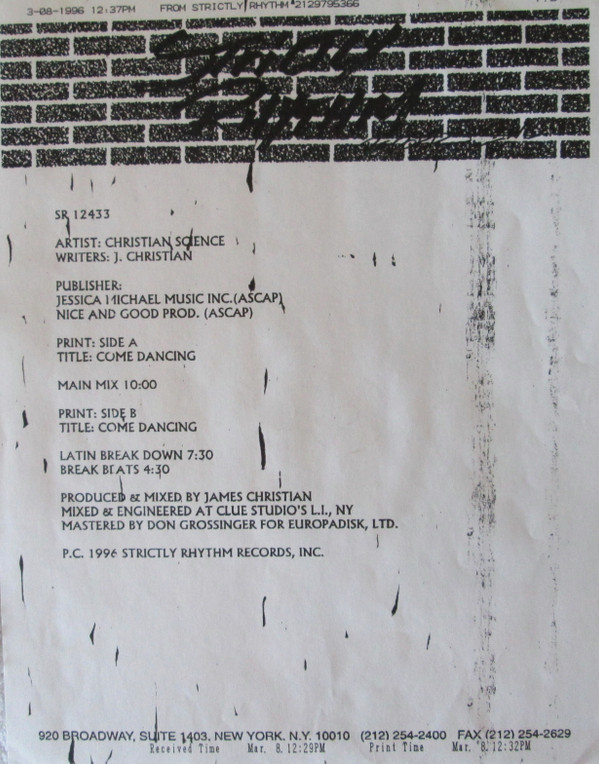 3-08-1996 12:37PM FROM STRICTLY RHYTHM 2129795366
STRICTLY
RHYTHM
SR 12433
ARTIST: CHRISTIAN SCIENCE
WRITERS: J. CHRISTIAN
PUBLISHER:
JESSICA MICHAEL MUSIC INC.(ASCAP)
NICE AND GOOD PROD. (ASCAP)
PRINT: SIDE A
TITLE: COME DANCING
MAIN MIX 10:00
PRINT: SIDE B
TITLE: COME DANCING
LATIN BREAK DOWN 7:30
BREAK BEATS 4:30
PRODUCED & MIXED BY JAMES CHRISTIAN
MIXED & ENGINEERED AT CLUE STUDIO'S L.I., NY
MASTERED BY DON GROSSINGER FOR EUROPADISK, LTD.
P.C. 1996 STRICTLY RHYTHM RECORDS, INC.
920 BROADWAY, SUITE 1403, NEW YORK. N.Y. 10010 (212) 254-2400 FAX (212) 254-2629
Received Time Mar. 8. 12:29PM Print Time Mar. 8. 12:32PM